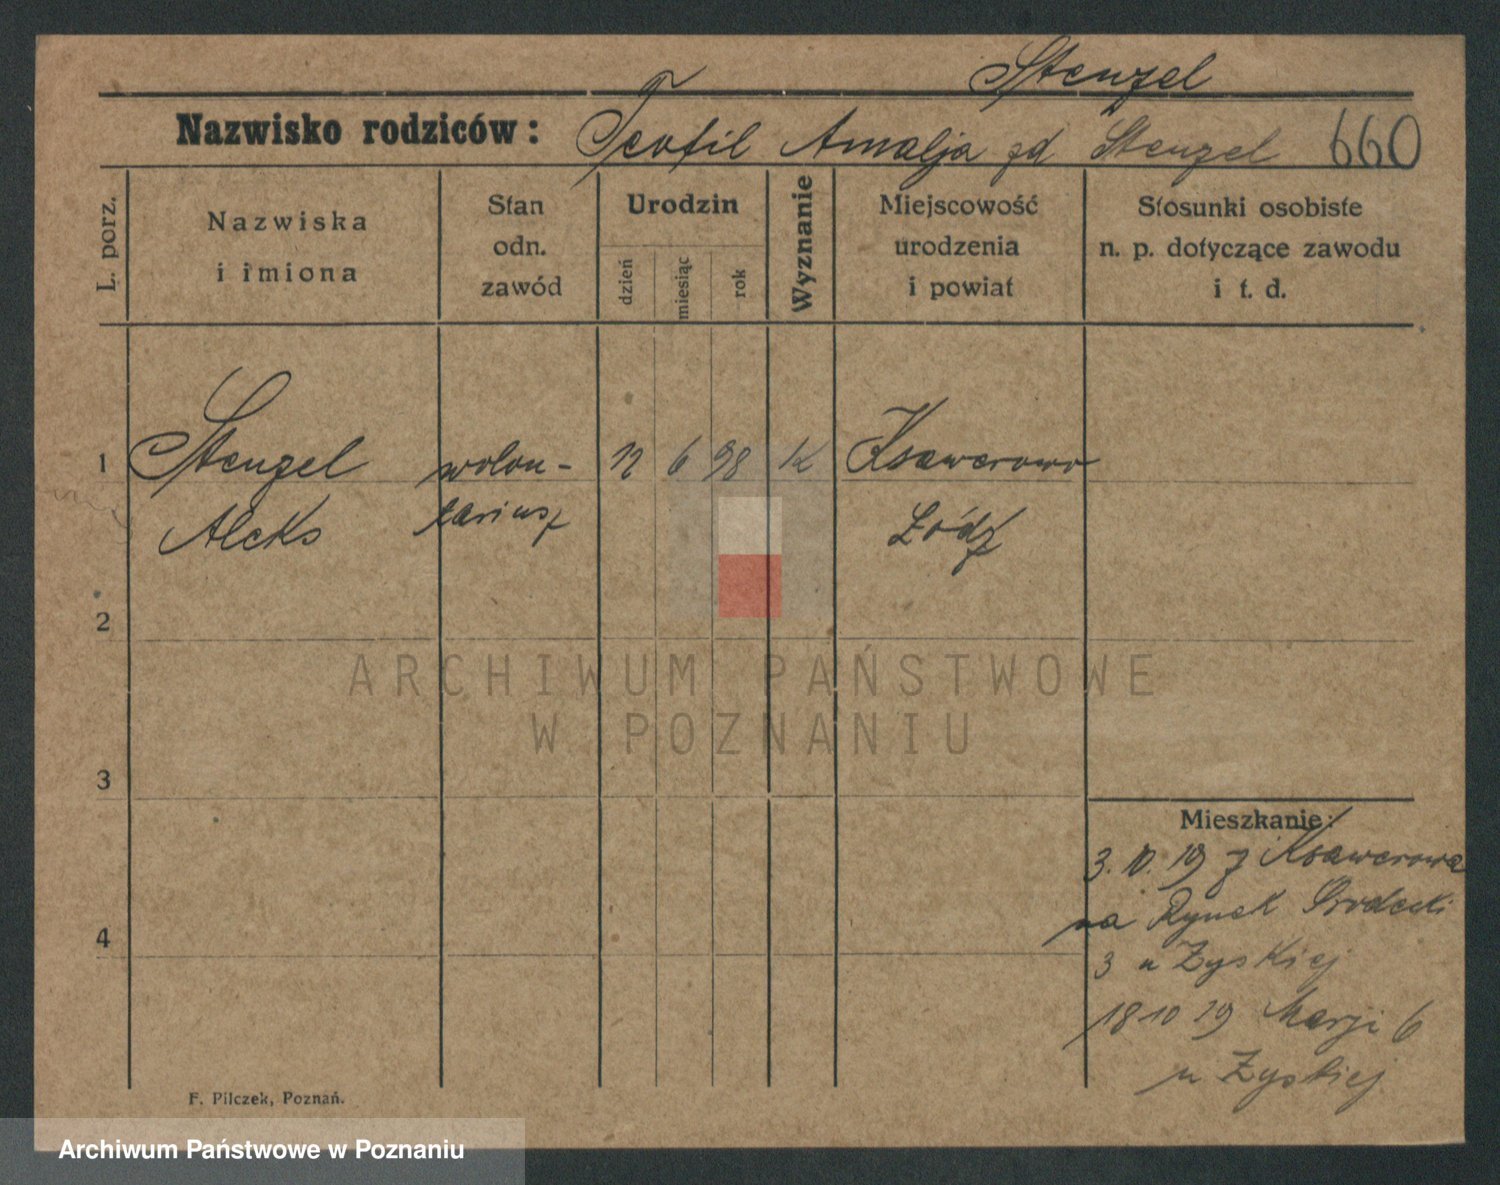 Stenzel
Nazwisko rodziców: Teofil Amalja zd Stenzel 660
L. porz.
Nazwiska
i imiona
Stan
odn.
zawód
Urodzin
dzień
miesiąc
rok
Wyznanie
Miejscowość
urodzenia
i powiat
Stosunki osobiste
n. p. dotyczące zawodu
i t. d.
1 Stenzel wolon- 12 6 98 K Ksawerowo
Aleks tariusz Łódź
2
ARCHIWUM PAŃSTWOWE
W POZNANIU
3
Mieszkanie:
3. 10. 19 z Ksawerowa
na Rynek
4
3 u Zyskiej
18 10 29 Marji 6
u Zyskiej
F. Pilczek, Poznań.
Archiwum Państwowe w Poznaniu